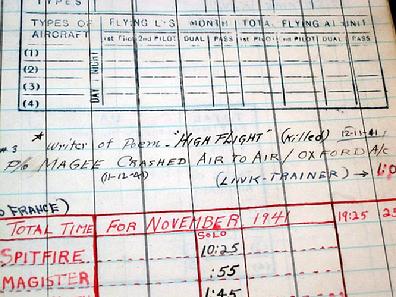 TYPES
TYPES OF AIRCRAFT FLYING MONTH TOTAL FLYING UNIT
1st Pilot 2nd PILOT DUAL PASS 1st PILOT 2nd PILOT DUAL PASS
(1)
(2)
(3)
(4)
DAY NIGHT
* Writer of Poem - "HIGH FLIGHT" (Killed) 12-11-41
P/O MAGEE CRASHED AIR TO AIR / OXFORD A/c
(11-12-41) (LINK-TRAINER) →
FRANCE)
TOTAL TIME FOR NOVEMBER 1941 19:25
SOLO
SPITFIRE 10:25
MAGISTER :55
1:45